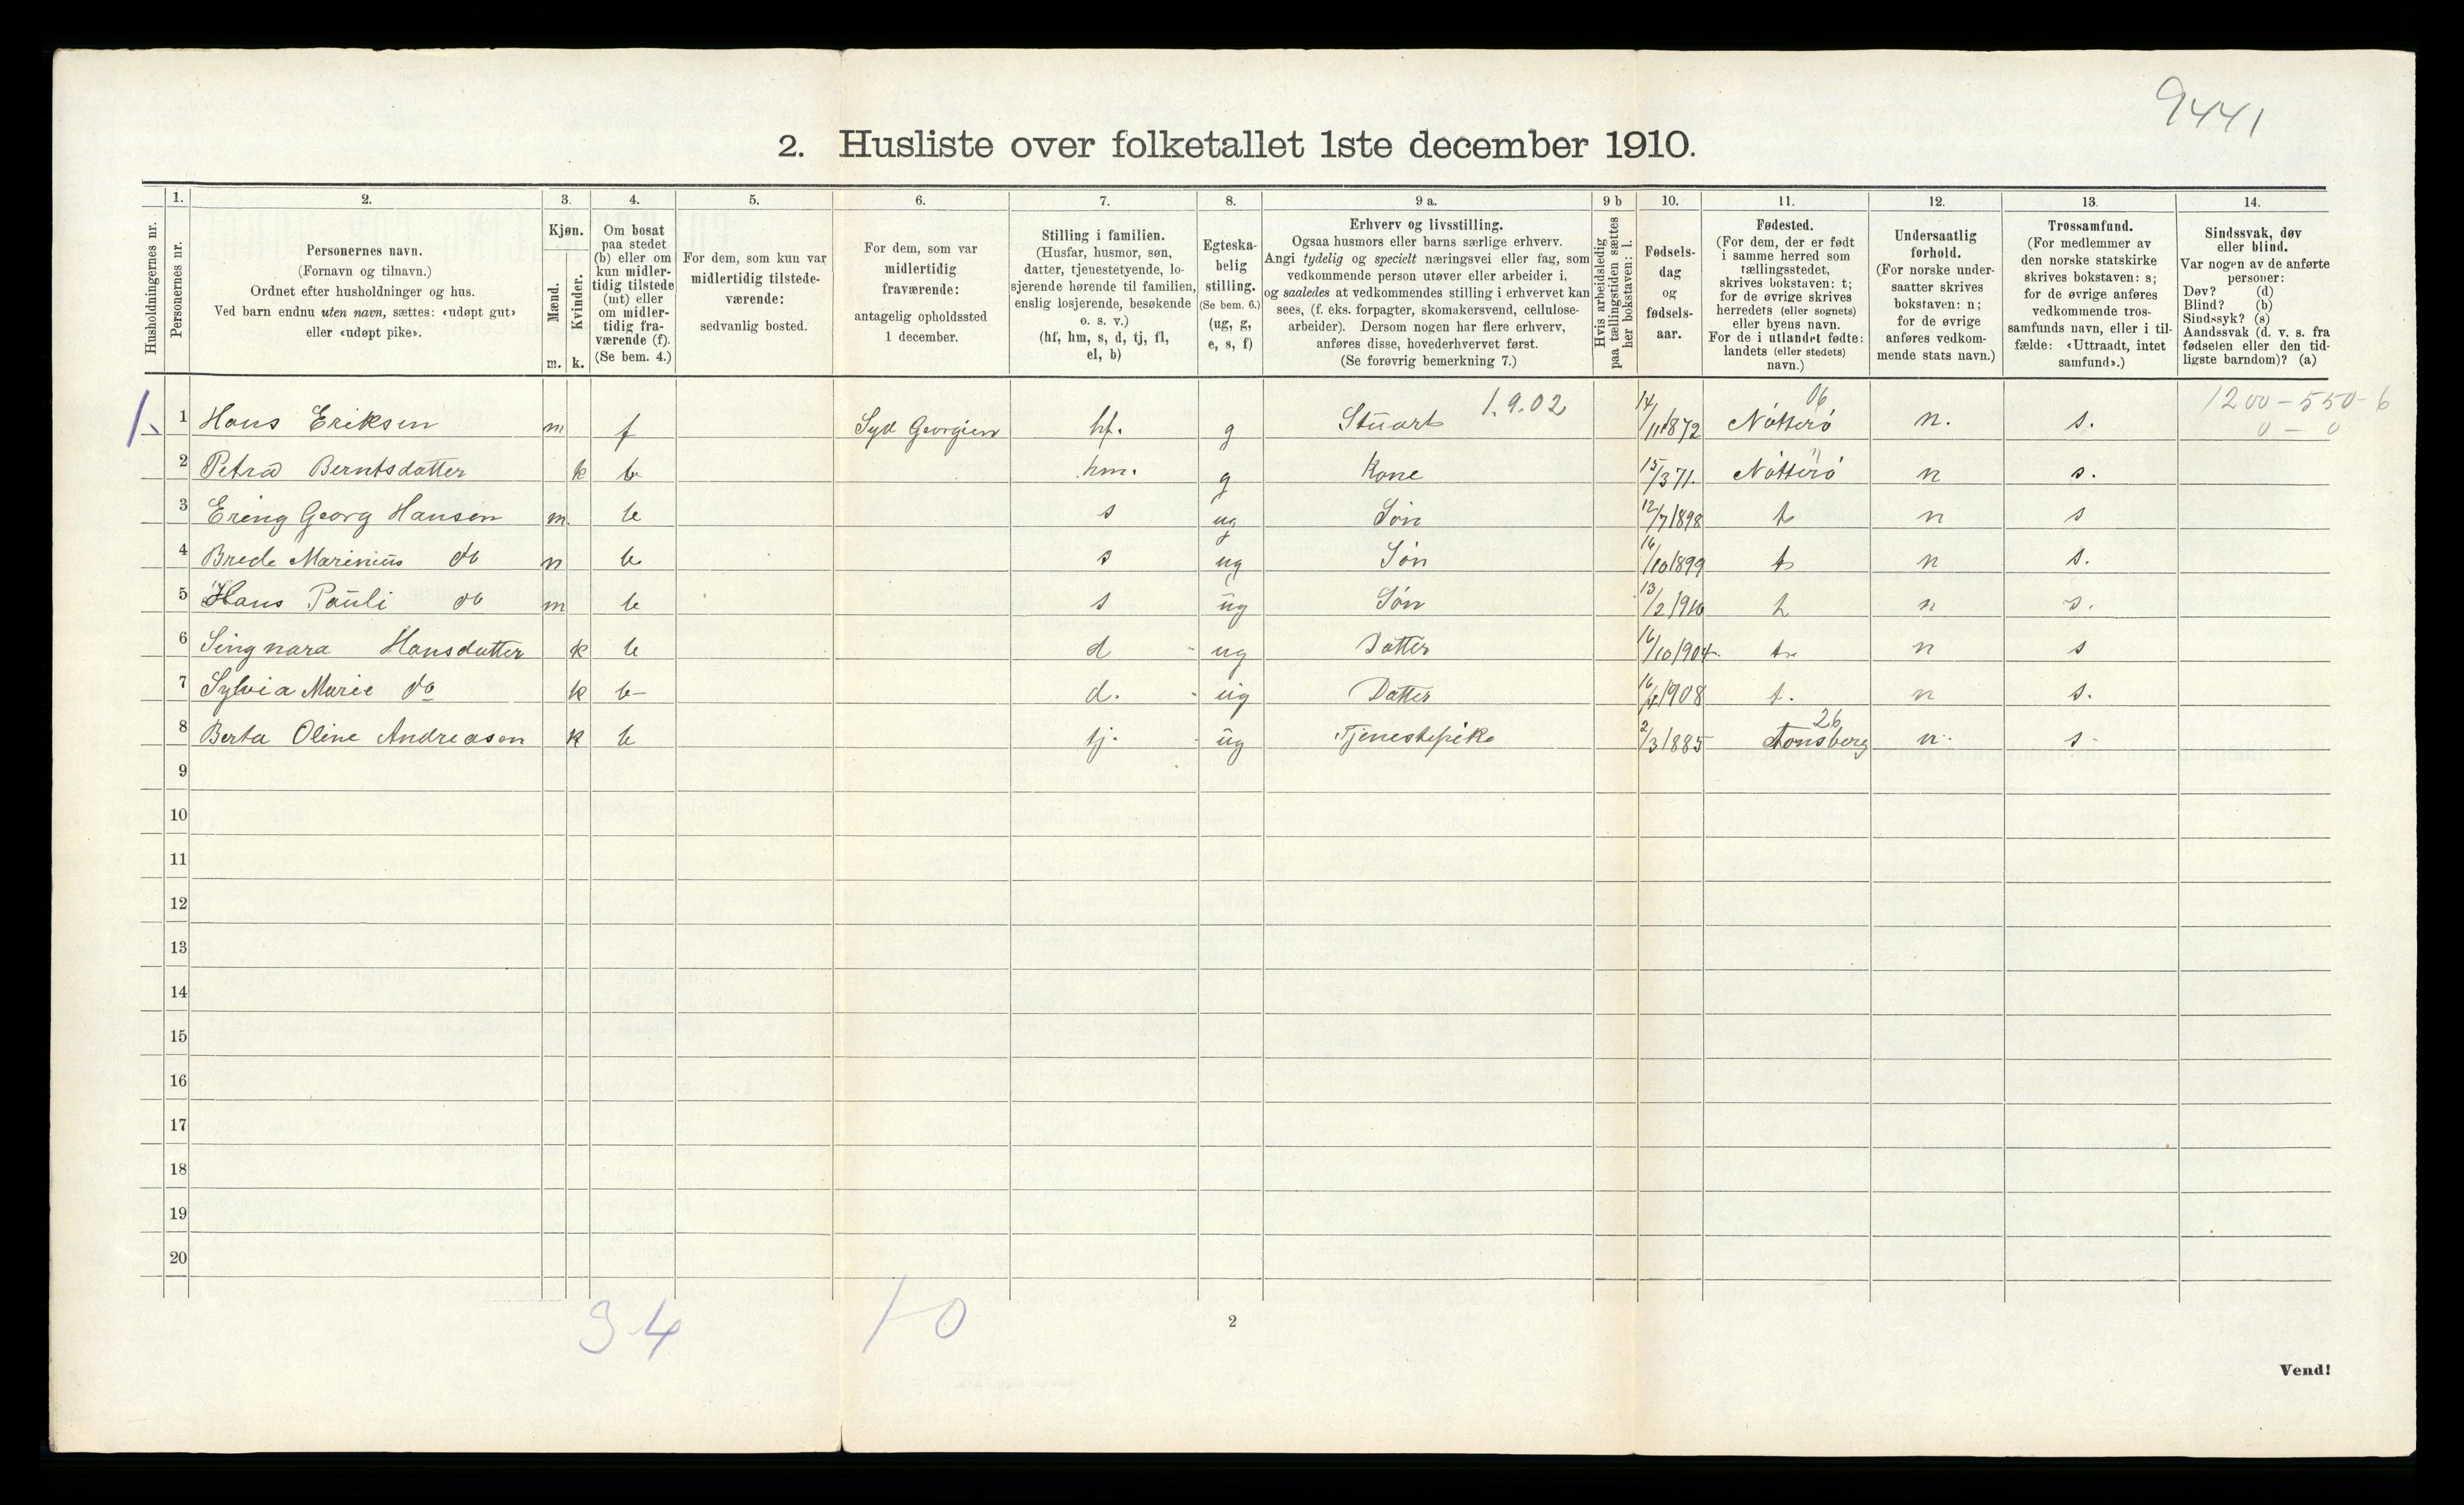 9441
2. Husliste over folketallet 1ste december 1910.
Husholdningernes nr.
1. Personernes nr.
2. Personernes navn. (Fornavn og tilnavn.) Ordnet efter husholdninger og hus. Ved barn endnu uten navn, sættes: «udøpt gut» eller «udøpt pike».
3. Kjøn. Mænd. m. Kvinder. k.
4. Om bosat paa stedet (b) eller om kun midlertidig tilstede (mt) eller om midlertidig fraværende (f). (Se bem. 4.)
5. For dem, som kun var midlertidig tilstedeværende: sedvanlig bosted.
6. For dem, som var midlertidig fraværende: antagelig opholdssted 1 december.
7. Stilling i familien. (Husfar, husmor, søn, datter, tjenestetyende, losjerende hørende til familien, enslig losjerende, besøkende o. s. v.) (hf, hm, s, d, tj, fl, el, b)
8. Egteskabelig stilling. (Se bem. 6.) (ug, g, e, s, f)
9 a. Erhverv og livsstilling. Ogsaa husmors eller barns særlige erhverv. Angi tydelig og specielt næringsvei eller fag, som vedkommende person utøver eller arbeider i, og saaledes at vedkommendes stilling i erhvervet kan sees, (f. eks. forpagter, skomakersvend, cellulosearbeider). Dersom nogen har flere erhverv, anføres disse, hovederhvervet først. (Se forøvrig bemerkning 7.)
9 b Hvis arbeidsledig paa tællingstiden sættes her bokstaven: l.
10. Fødselsdag og fødselsaar.
11. Fødested. (For dem, der er født i samme herred som tællingsstedet, skrives bokstaven: t; for de øvrige skrives herredets (eller sognets) eller byens navn. For de i utlandet fødte: landets (eller stedets) navn.)
12. Undersaatlig forhold. (For norske undersaatter skrives bokstaven: n; for de øvrige anføres vedkommende stats navn.)
13. Trossamfund. (For medlemmer av den norske statskirke skrives bokstaven: s; for de øvrige anføres vedkommende trossamfunds navn, eller i tilfælde: «Uttraadt, intet samfund».)
14. Sindssvak, døv eller blind. Var nogen av de anførte personer: Døv? (d) Blind? (b) Sindssyk? (s) Aandssvak (d. v. s. fra fødselen eller den tidligste barndom)? (a)
1. 1 Hans Eriksen m f Syd Georgien hf. g Stuart 1.9.02 14/11 1872 Nøtterø 06 n. s. 1200-550-6
0 - 0
2 Petra Berntsdatter k b hm. g Kone 15/3 71. Nøtterø " n s.
3 Ering Georg Hansen m b s ug Søn 12/7 1898 t n s
4 Brede Marinius do m b s ug Søn 16/10 1899 t n s.
5 Hans Pauli do m b s ug Søn 13/2 1910 t n s.
6 Singnara Hansdatter k b d ug Datter 16/10 1904 t n s
7 Sylvia Marie do k b d. ug Datter 16/4 1908 t. n s.
8 Berta Oline Andreasen k b tj. ug Tjenestepike 2/3 1885 Tønsberg 26 n s
9
10
11
12
13
14
15
16
17
18
19
20
3-4 1-0
2
Vend!